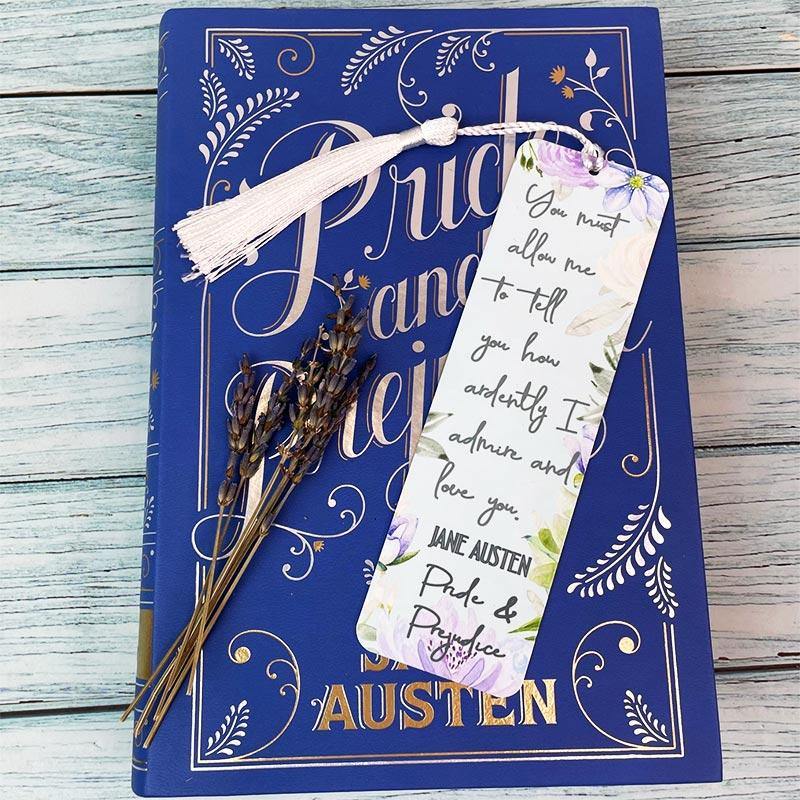 Pride
and
Prej
AUSTEN
You must
allow me
to tell
you how
ardently I
admire and
love you.
JANE AUSTEN
Pride &
Prejudice